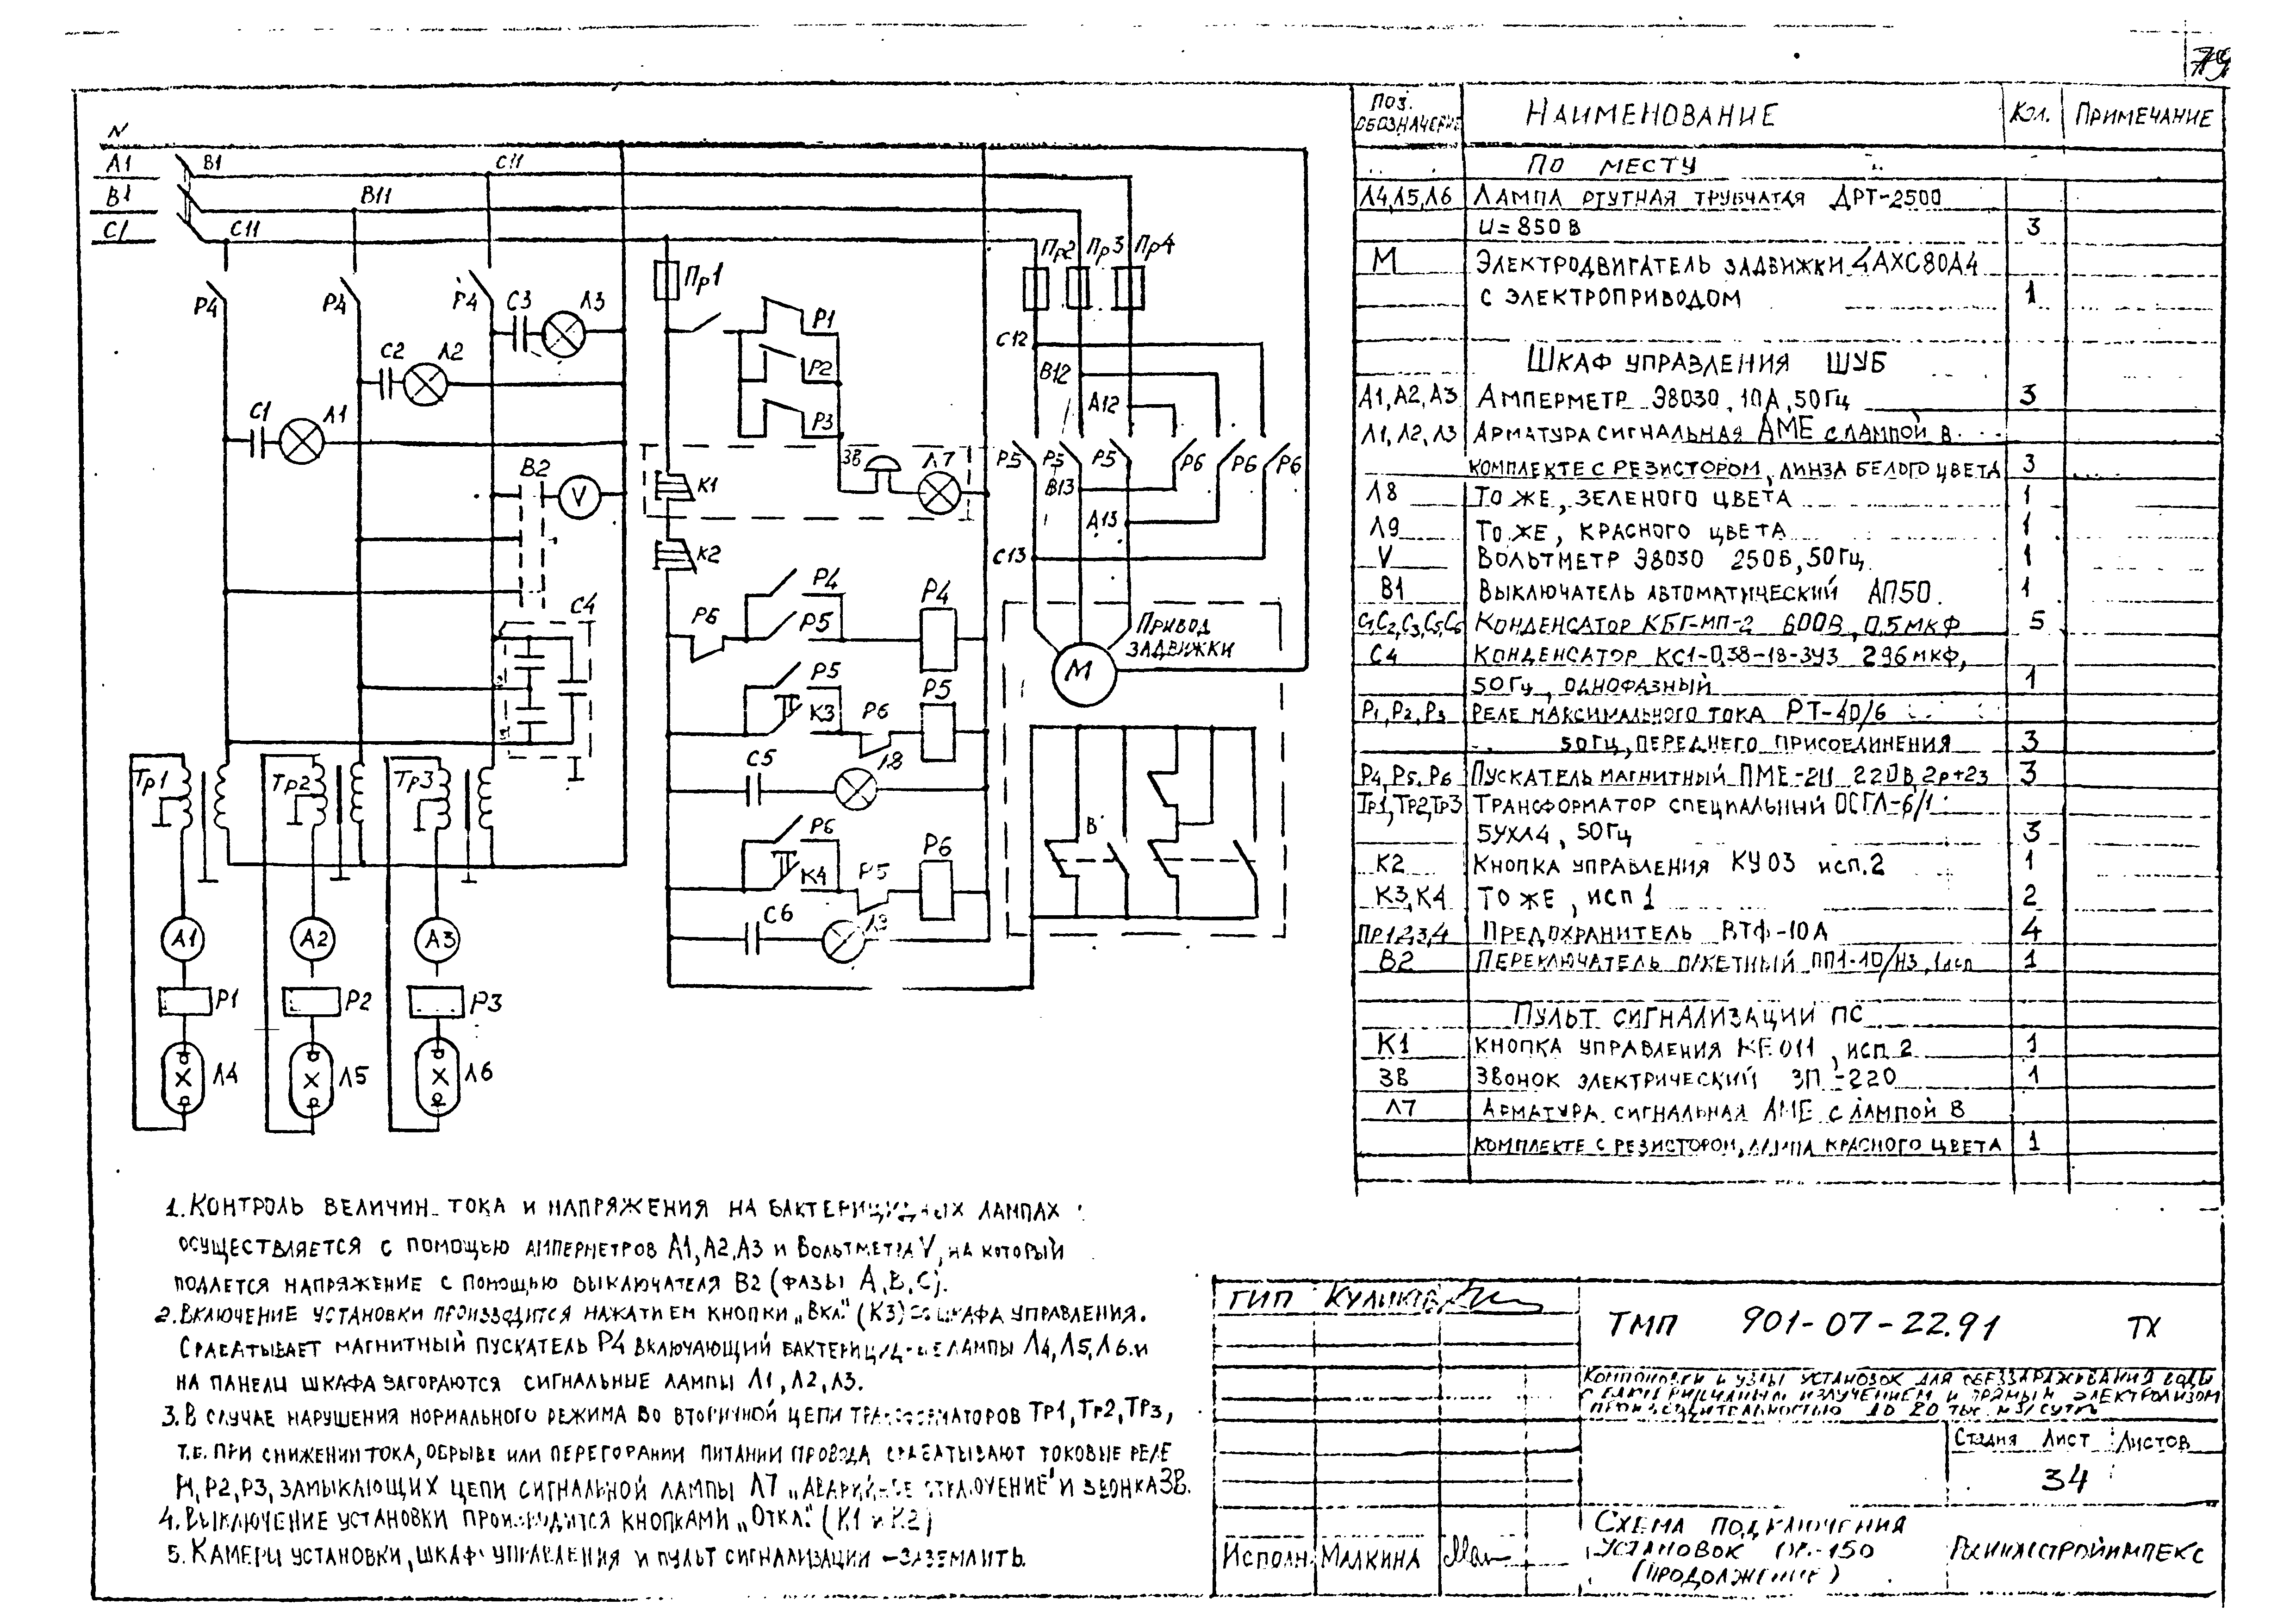 79
N
A1
B1
C1
B1
C11
B11
C11
P4
P4
P4
C3
Л3
C2
Л2
C1
Л1
B2
V
C4
Пр1
P1
P2
P3
ЗВ
Л7
K1
K2
P4
P5
P6
P4
P5
K3
P6
P5
C5
Л8
P6
K4
P5
P6
C6
Л9
Пр2
Пр3
Пр4
C12
B12
A12
P5
P5
P5
P6
P6
P6
B13
A13
C13
Привод
задвижки
M
B
Тр1
Тр2
Тр3
A1
A2
A3
P1
P2
P3
Л4
Л5
Л6
Поз. обозначение
Наименование
Кол.
Примечание
По месту
Л4,Л5,Л6 Лампа ртутная трубчатая ДРТ-2500
U=850В 3
М Электродвигатель задвижки 4АХС80А4
с электроприводом 1
Шкаф управления ШУБ
А1,А2,А3 Амперметр Э8030, 10А, 50Гц 3
Л1,Л2,Л3 Арматура сигнальная АМЕ с лампой в
комплекте с резистором, линза белого цвета 3
Л8 То же, зеленого цвета 1
Л9 То же, красного цвета 1
V Вольтметр Э8030 250В, 50Гц 1
В1 Выключатель автоматический АП50. 1
С1,С2,С3,С5,С6 Конденсатор КБГ-МП-2 600В, 0,5мкф 5
С4 Конденсатор КС1-0,38-18-3У3 296мкф,
50Гц, однофазный 1
Р1,Р2,Р3 Реле максимального тока РТ-40/6
50Гц, переднего присоединения 3
Р4,Р5,Р6 Пускатель магнитный ПМЕ-211 220В, 2р+2з 3
Тр1,Тр2,Тр3 Трансформатор специальный ОСГЛ-6/1
5УХЛ4, 50Гц 3
К2 Кнопка управления КУ03 исп.2 1
К3,К4 То же, исп 1 2
Пр1,2,3,4 Предохранитель ВТФ-10А 4
В2 Переключатель пакетный ПП1-10/Н3, 1исп 1
Пульт сигнализации ПС
К1 Кнопка управления КЕ011, исп 2 1
ЗВ Звонок электрический ЗП-220 1
Л7 Арматура сигнальная АМЕ с лампой в
комплекте с резистором, лампа красного цвета 1
1. Контроль величин тока и напряжения на бактерицидных лампах
осуществляется с помощью амперметров А1,А2,А3 и вольтметра V, на который
подается напряжение с помощью выключателя В2 (фазы А,В,С).
2. Включение установки производится нажатием кнопки „Вкл." (К3) со шкафа управления.
Срабатывает магнитный пускатель Р4 включающий бактерицидные лампы Л4,Л5,Л6. и
на панели шкафа загораются сигнальные лампы Л1, Л2, Л3.
3. В случае нарушения нормального режима во вторичной цепи трансформаторов Тр1, Тр2, Тр3,
т.е. при снижении тока, обрыве или перегорании питании провода срабатывают токовые реле
Р1, Р2, Р3, замыкающих цепи сигнальной лампы Л7 „Аварийное отключение" и звонка ЗВ.
4. Выключение установки производится кнопками „Откл." (К1 и К2)
5. Камеры установки, шкаф управления и пульт сигнализации – заземлить.
ГИП Куликов
ТМП 901-07-22.91 ТХ
Компоновки и узлы установок для обеззараживания воды
бактерицидным излучением и прямым электролизом
производительностью до 20 тыс. м3/сутки
Стадия Лист Листов
34
Исполн. Малкина
Схема подключения
установок ОВ-150
(продолжение)
Росинжстройимпекс